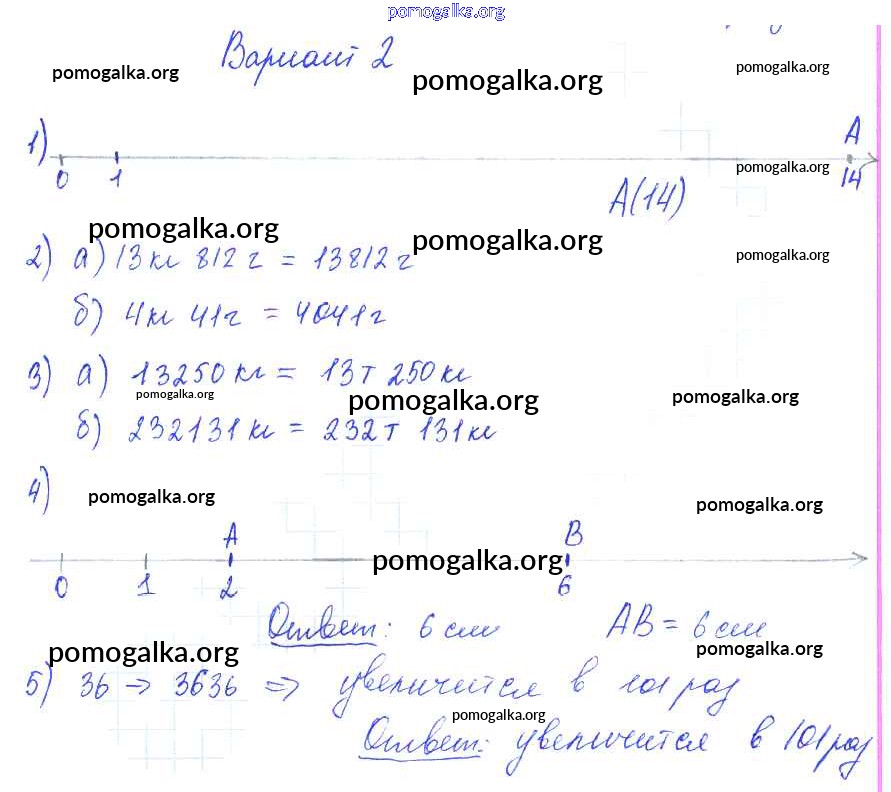 pomogalka.org
Вариант 2
pomogalka.org pomogalka.org pomogalka.org
1) 0 1 A 14
pomogalka.org
A(14)
pomogalka.org pomogalka.org pomogalka.org
2) а) 13кг 812 г = 13812 г
б) 4кг 41г = 4041г
3) а) 13250кг = 13т 250кг
pomogalka.org pomogalka.org pomogalka.org
б) 232131кг = 232т 131кг
4)
pomogalka.org pomogalka.org
A B
pomogalka.org
0 1 2 6
Ответ: 6 см AB = 6 см
pomogalka.org pomogalka.org
5) 36 → 3636 => увеличится в 101 раз
pomogalka.org
Ответ: увеличится в 101 раз